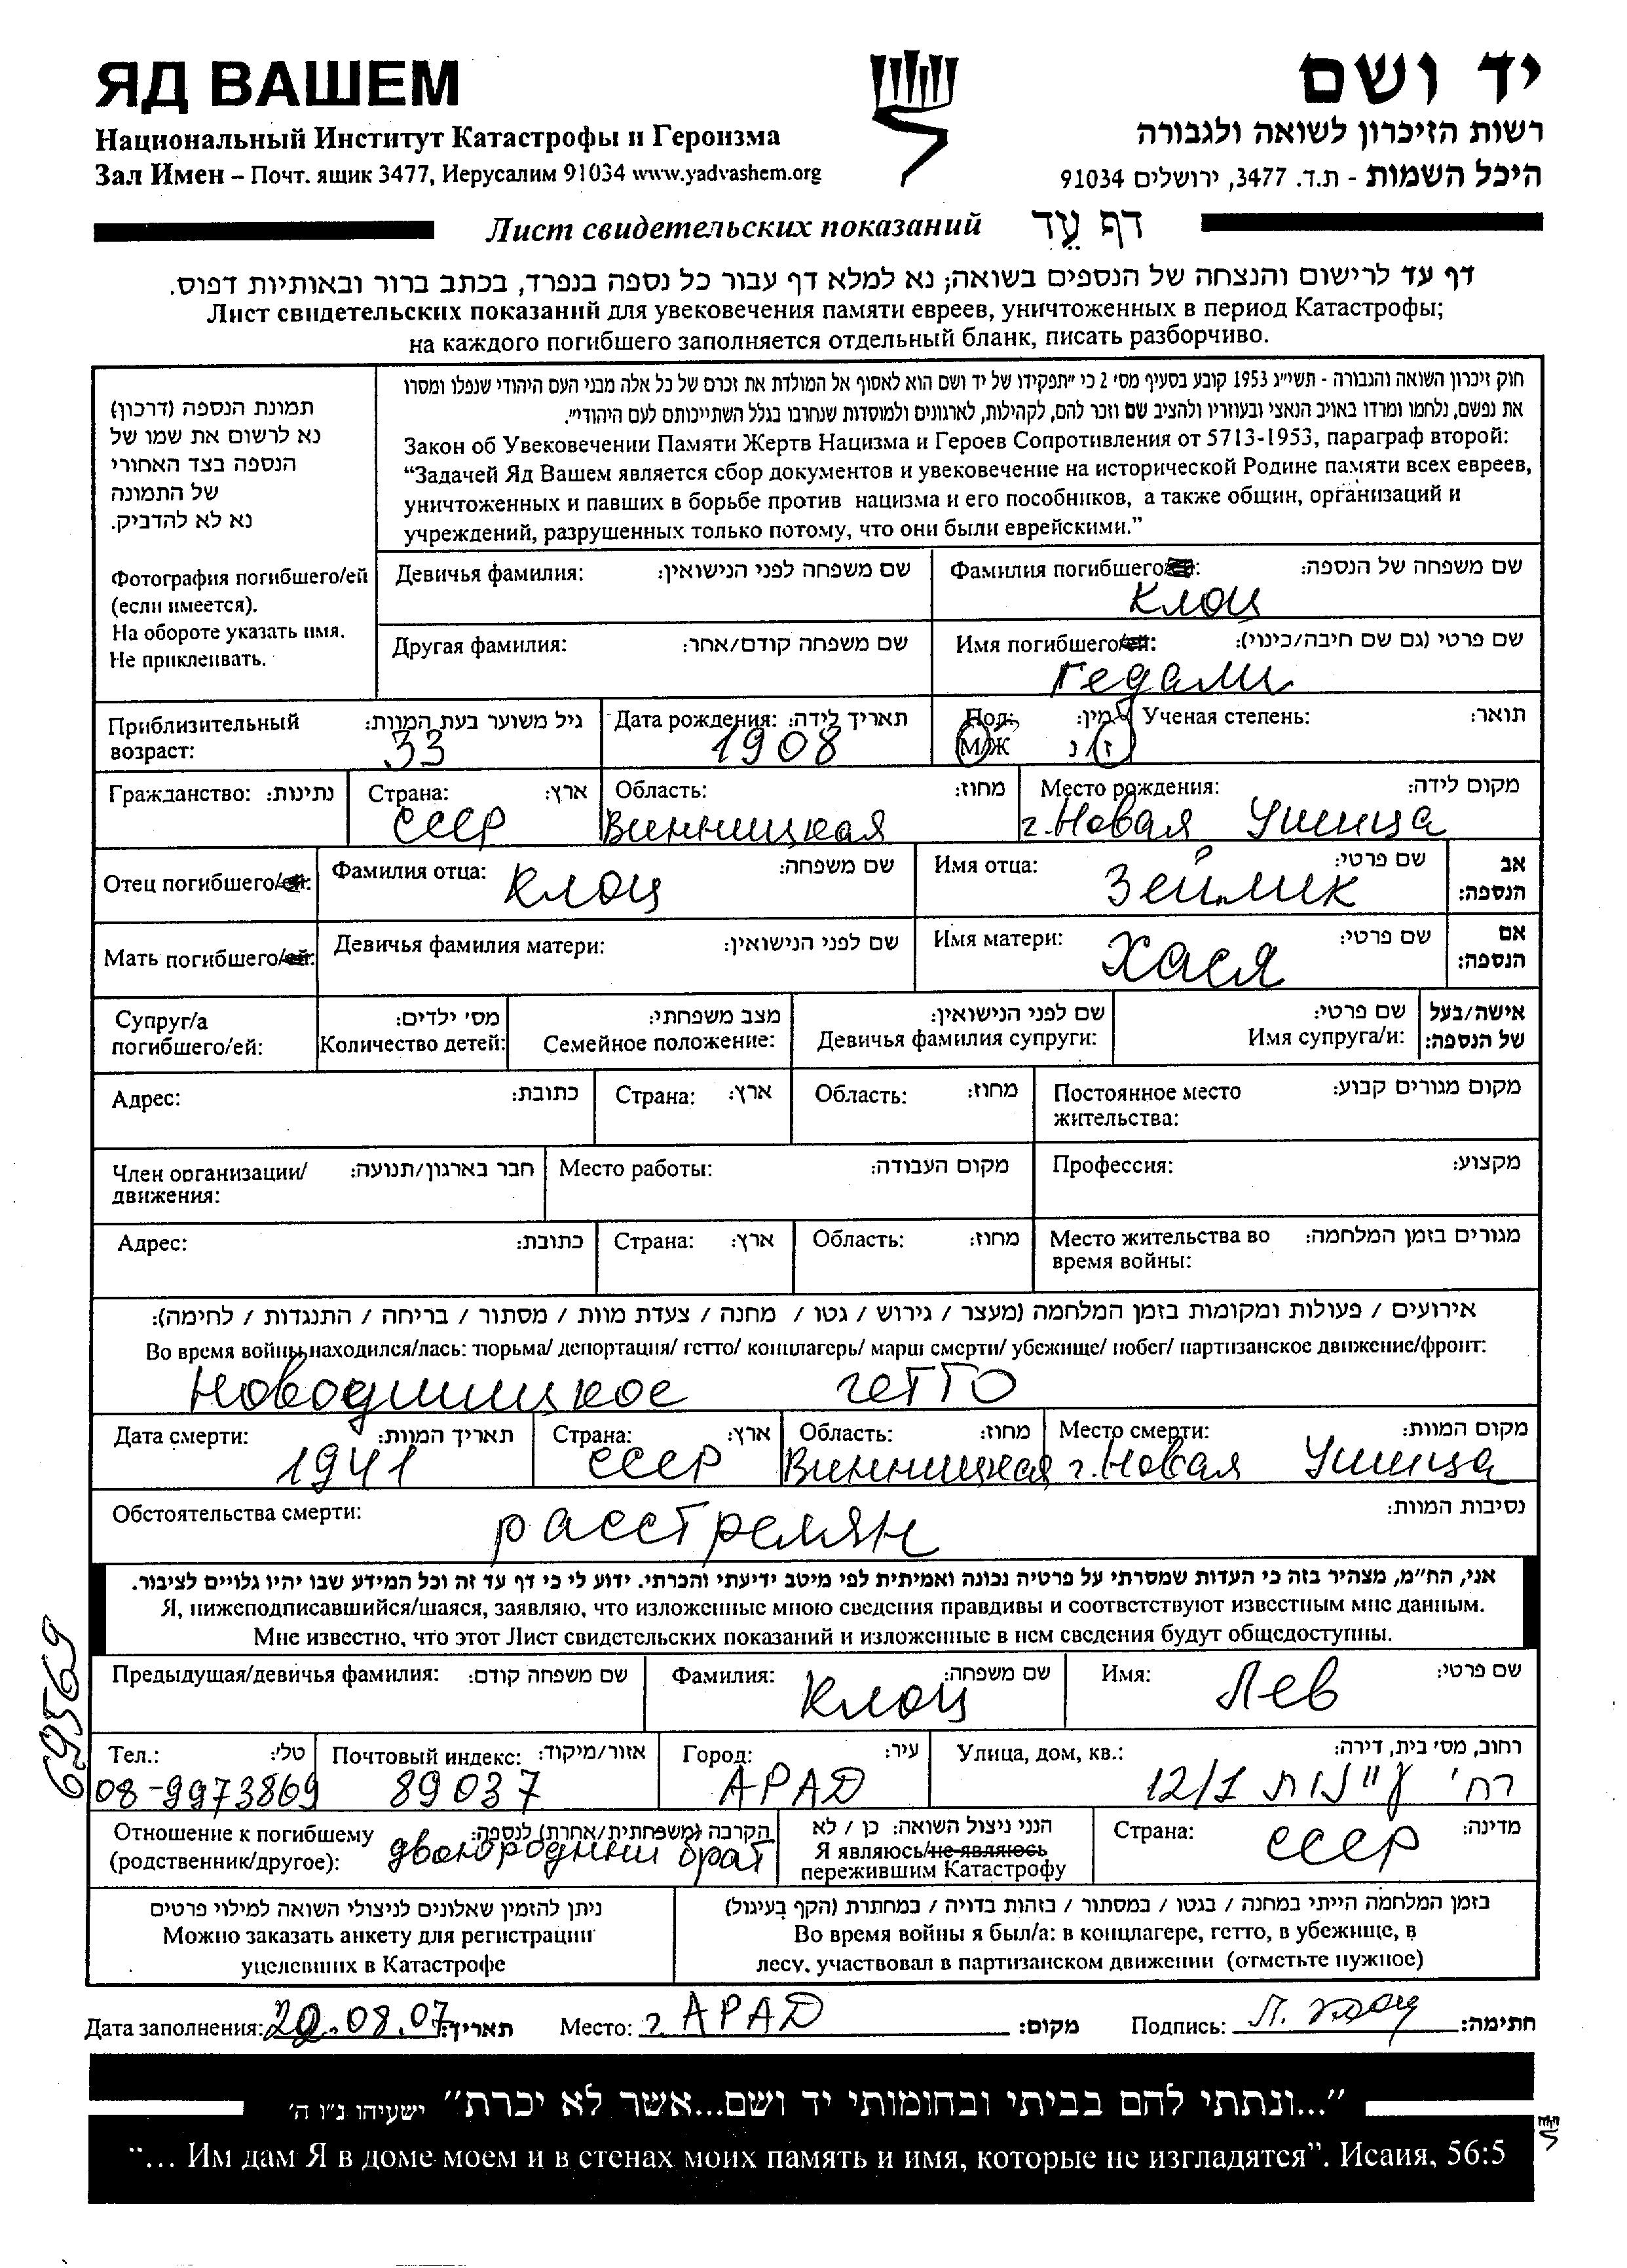 ЯД ВАШЕМ
יד ושם
Национальный Институт Катастрофы и Героизма
רשות הזיכרון לשואה ולגבורה
Зал Имен – Почт. ящик 3477, Иерусалим 91034 www.yadvashem.org
היכל השמות - ת.ד. 3477, ירושלים 91034
Лист свидетельских показаний דף עֵד
דף עד לרישום והנצחה של הנספים בשואה; נא למלא דף עבור כל נספה בנפרד, בכתב ברור ובאותיות דפוס.
Лист свидетельских показаний для увековечения памяти евреев, уничтоженных в период Катастрофы;
на каждого погибшего заполняется отдельный бланк, писать разборчиво.
תמונת הנספה (דרכון)
נא לרשום את שמו של
הנספה בצד האחורי
של התמונה
נא לא להדביק.
Фотография погибшего/ей
(если имеется).
На обороте указать имя.
Не приклеивать.
חוק זיכרון השואה והגבורה - תשי״ג 1953 קובע בסעיף מס׳ 2 כי ״תפקידו של יד ושם הוא לאסוף אל המולדת את זכרם של כל אלה מבני העם היהודי שנפלו ומסרו
את נפשם, נלחמו ומרדו באויב הנאצי ובעוזריו ולהציב שם וזכר להם, לקהילות, לארגונים ולמוסדות שנחרבו בגלל השתייכותם לעם היהודי״.
Закон об Увековечении Памяти Жертв Нацизма и Героев Сопротивления от 5713-1953, параграф второй:
“Задачей Яд Вашем является сбор документов и увековечение на исторической Родине памяти всех евреев,
уничтоженных и павших в борьбе против нацизма и его пособников, а также общин, организаций и
учреждений, разрушенных только потому, что они были еврейскими.”
Девичья фамилия: שם משפחה לפני הנישואין:
Фамилия погибшего/ей: שם משפחה של הנספה:
Клоц
Другая фамилия: שם משפחה קודם/אחר:
Имя погибшего/ей: שם פרטי (גם שם חיבה/כינוי):
Гедали
Приблизительный возраст: גיל משוער בעת המוות:
33
Дата рождения: תאריך לידה:
1908
Пол: מין:
М/Ж ז/נ
Ученая степень: תואר:
Гражданство: נתינות:
Страна: ארץ:
СССР
Область: מחוז:
Винницкая
Место рождения: מקום לידה:
г. Новая Ушица
Отец погибшего/ей:
Фамилия отца: שם משפחה:
Клоц
Имя отца: שם פרטי:
Зейлик
אב הנספה:
Мать погибшего/ей:
Девичья фамилия матери: שם לפני הנישואין:
Имя матери: שם פרטי:
Хася
אם הנספה:
Супруг/а погибшего/ей:
מס׳ ילדים:
Количество детей:
מצב משפחתי:
Семейное положение:
שם לפני הנישואין:
Девичья фамилия супруги:
שם פרטי:
Имя супруга/и:
אישה/בעל של הנספה:
Адрес: כתובת:
Страна: ארץ:
Область: מחוז:
Постоянное место жительства: מקום מגורים קבוע:
Член организации/движения: חבר בארגון/תנועה:
Место работы: מקום העבודה:
Профессия: מקצוע:
Адрес: כתובת:
Страна: ארץ:
Область: מחוז:
Место жительства во время войны: מגורים בזמן המלחמה:
אירועים / פעולות ומקומות בזמן המלחמה (מעצר / גירוש / גטו / מחנה / צעדת מוות / מסתור / בריחה / התנגדות / לחימה):
Во время войны находился/лась: тюрьма/ депортация/ гетто/ концлагерь/ марш смерти/ убежище/ побег/ партизанское движение/фронт:
Новоушицкое гетто
Дата смерти: תאריך המוות:
1941
Страна: ארץ:
СССР
Область: מחוז:
Винницкая
Место смерти: מקום המוות:
г. Новая Ушица
Обстоятельства смерти: נסיבות המוות:
расстрелян
אני, הח״מ, מצהיר בזה כי העדות שמסרתי על פרטיה נכונה ואמיתית לפי מיטב ידיעתי והכרתי. ידוע לי כי דף עד זה וכל המידע שבו יהיו גלויים לציבור.
Я, нижеподписавшийся/шаяся, заявляю, что изложенные мною сведения правдивы и соответствуют известным мне данным.
Мне известно, что этот Лист свидетельских показаний и изложенные в нем сведения будут общедоступны.
69569
Предыдущая/девичья фамилия: שם משפחה קודם:
Фамилия: שם משפחה:
Клоц
Имя: שם פרטי:
Лев
Тел.: טל׳:
08-9973869
Почтовый индекс: אזור/מיקוד:
89037
Город: עיר:
АРАД
Улица, дом, кв.: רחוב, מס׳ בית, דירה:
רח׳ 12/1
Отношение к погибшему (родственник/другое): הקרבה (משפחתית/אחרת) לנספה:
двоюродный брат
הנני ניצול השואה: כן / לא
Я являюсь/не являюсь
пережившим Катастрофу
Страна: מדינה:
СССР
ניתן להזמין שאלונים לניצולי השואה למילוי פרטים
Можно заказать анкету для регистрации
уцелевших в Катастрофе
בזמן המלחמה הייתי במחנה / בגטו / במסתור / בזהות בדויה / במחתרת (הקף בעיגול)
Во время войны я был/а: в концлагере, гетто, в убежище, в
лесу, участвовал в партизанском движении (отметьте нужное)
Дата заполнения: 20.08.07 תאריך: Место: г. АРАД מקום: Подпись: Л. Клоц חתימה:
״...ונתתי להם בביתי ובחומותי יד ושם...אשר לא יכרת״ ישעיהו נ״ו ה׳
“... Им дам Я в доме моем и в стенах моих память и имя, которые не изгладятся”. Исаия, 56:5